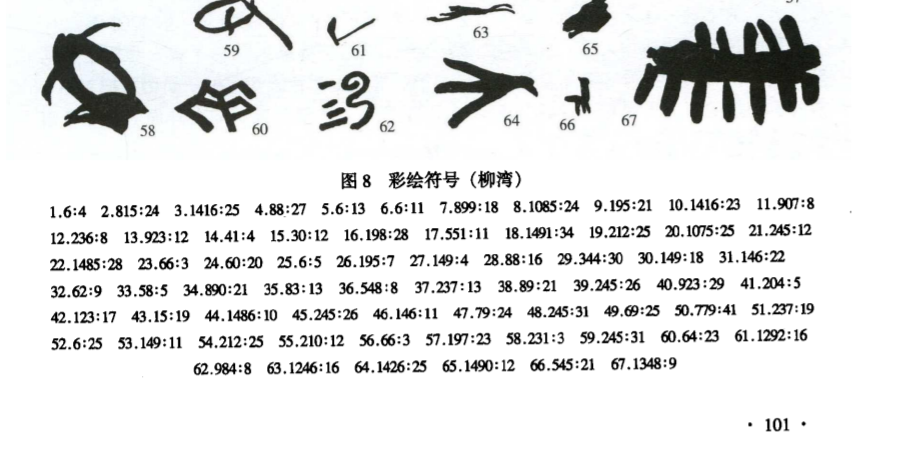 57
59
61
63
65
58
60
62
64
66
67
图8 彩绘符号（柳湾）
1.6:4 2.815:24 3.1416:25 4.88:27 5.6:13 6.6:11 7.899:18 8.1085:24 9.195:21 10.1416:23 11.907:8
12.236:8 13.923:12 14.41:4 15.30:12 16.198:28 17.551:11 18.1491:34 19.212:25 20.1075:25 21.245:12
22.1485:28 23.66:3 24.60:20 25.6:5 26.195:7 27.149:4 28.88:16 29.344:30 30.149:18 31.146:22
32.62:9 33.58:5 34.890:21 35.83:13 36.548:8 37.237:13 38.89:21 39.245:26 40.923:29 41.204:5
42.123:17 43.15:19 44.1486:10 45.245:26 46.146:11 47.79:24 48.245:31 49.69:25 50.779:41 51.237:19
52.6:25 53.149:11 54.212:25 55.210:12 56.66:3 57.197:23 58.231:3 59.245:31 60.64:23 61.1292:16
62.984:8 63.1246:16 64.1426:25 65.1490:12 66.545:21 67.1348:9
· 101 ·